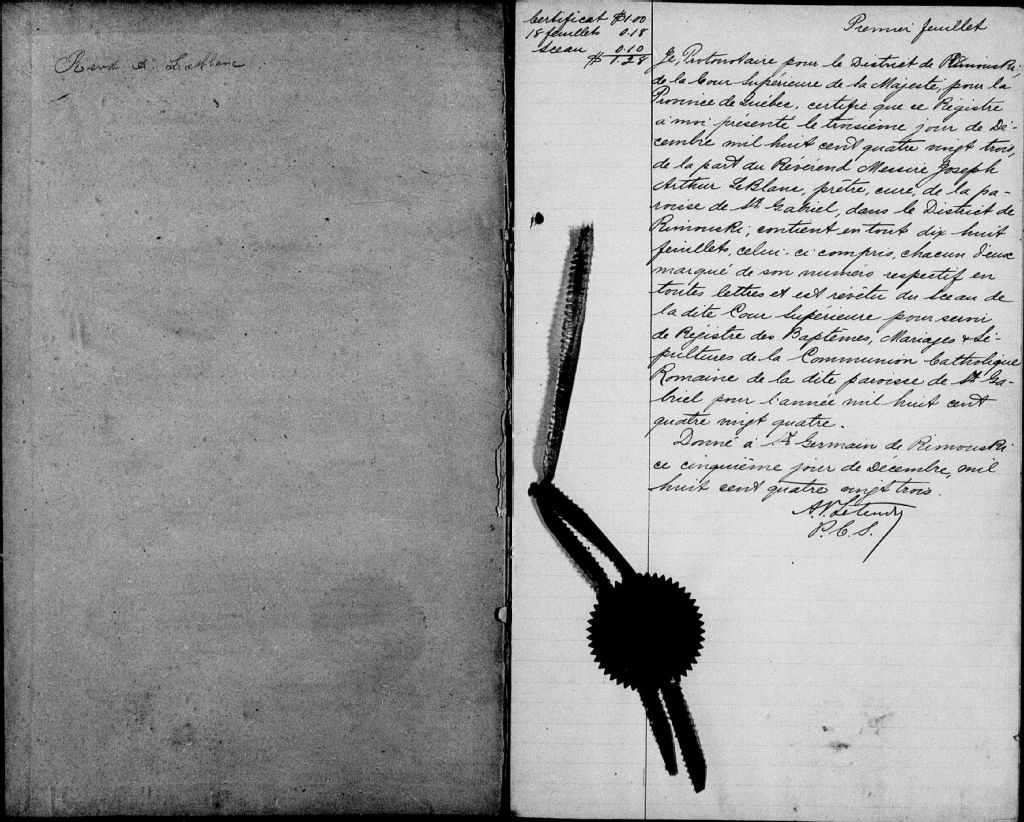 Revd A. LeBlanc
Certificat $1.00
18 feuillets 0.18
Sceau 0.10
$ 1.28
Premier feuillet
Je, Protonotaire pour le District de Rimouski,
de la Cour Supérieure de sa Majesté, pour la
Province de Québec, certifie que ce Régistre
a moi présenté le troisième jour de Dé-
cembre mil huit cent quatre vingt trois,
de la part du Révérend Messire Joseph
Arthur LeBlanc, prêtre, curé, de la pa-
roisse de St. Gabriel, dans le District de
Rimouski, contient en tout dix huit
feuillets, celui-ci compris, chacun d'eux
marqué de son numéro respectif en
toutes lettres et est révêtu du sceau de
la dite Cour Supérieure pour servir
de Régistre des Baptêmes, Mariages & Sé-
pultures de la Communion Catholique
Romaine de la dite paroisse de St. Ga-
briel pour l'année mil huit cent
quatre vingt quatre.
Donné à St. Germain de Rimouski
ce cinquième jour de Décembre, mil
huit cent quatre vingt trois.
A. P. Letendre
P. C. S.